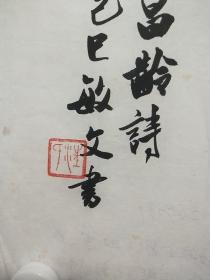 昌齡詩
己巳敏文書